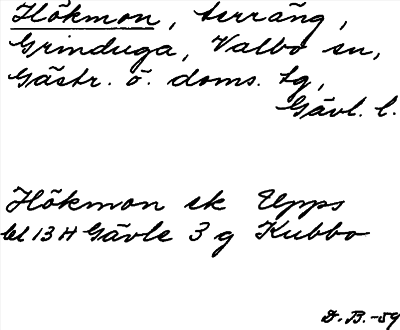 Hökmon, terräng,
Grinduga, Valbo sn,
Gästr. ö. doms. tg,
Gävl. l.
Hökmon ek Upps
bl 13 H Gävle 3 g Kubbo
D. B. -59